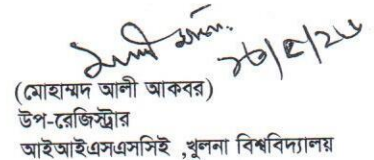 ২৮/৫/২৬
(মোহাম্মদ আলী আকবর)
উপ-রেজিস্ট্রার
আইআইএসএসসিই ,খুলনা বিশ্ববিদ্যালয়